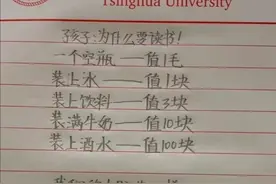 Tsinghua University
孩子:为什么要读书!
一个空瓶——值1毛
装上水——值1块
装上饮料——值3块
装满牛奶——值10块
装上酒水——值100块